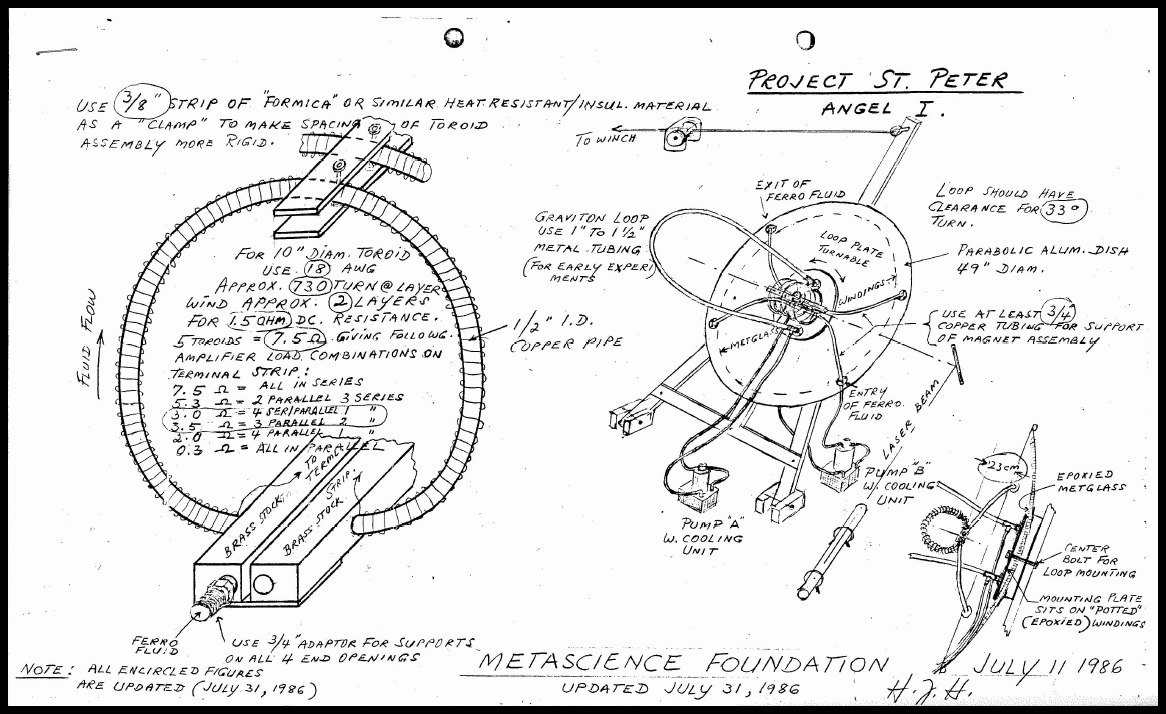 PROJECT ST. PETER
ANGEL I.
USE 3/8" STRIP OF "FORMICA" OR SIMILAR HEAT RESISTANT/INSUL. MATERIAL
AS A "CLAMP" TO MAKE SPACING OF TOROID
ASSEMBLY MORE RIGID.
FOR 10" DIAM. TOROID
USE 18 AWG
APPROX. 730 TURN @ LAYER
WIND APPROX. 2 LAYERS
FOR 1.5 OHM DC. RESISTANCE.
5 TOROIDS = 7.5 Ω. GIVING FOLLOWG.
AMPLIFIER LOAD COMBINATIONS ON
TERMINAL STRIP:
7.5 Ω = ALL IN SERIES
5.3 Ω = 2 PARALLEL 3 SERIES
3.0 Ω = 4 SER/PARALLEL 1 "
3.5 Ω = 3 PARALLEL 2 "
2.0 Ω = 4 PARALLEL 1 "
0.3 Ω = ALL IN PARALLEL
FLUID FLOW
1/2" I.D.
COPPER PIPE
BRASS STOCK
TO
STRIP.
BRASS STOCK
FERRO
FLUID
USE 3/4" ADAPTOR FOR SUPPORTS
ON ALL 4 END OPENINGS
NOTE: ALL ENCIRCLED FIGURES
ARE UPDATED (JULY 31, 1986)
TO WINCH
EXIT OF
FERRO FLUID
GRAVITON LOOP
USE 1" TO 1 1/2"
METAL TUBING
(FOR EARLY EXPERI
MENTS
LOOP PLATE
TURNABLE
WINDINGS
METGLAS
LOOP SHOULD HAVE
CLEARANCE FOR 330
TURN.
PARABOLIC ALUM. DISH
49" DIAM.
USE AT LEAST 3/4
COPPER TUBING FOR SUPPORT
OF MAGNET ASSEMBLY
LASER BEAM
ENTRY
OF FERRO.
FLUID
PUMP "A"
W. COOLING
UNIT
PUMP "B"
W. COOLING
UNIT
23cm
EPOXIED
METGLASS
CENTER
BOLT FOR
LOOP MOUNTING
MOUNTING PLATE
SITS ON "POTTED"
(EPOXIED) WINDINGS
METASCIENCE FOUNDATION
JULY 11 1986
UPDATED JULY 31, 1986
H.J.H.